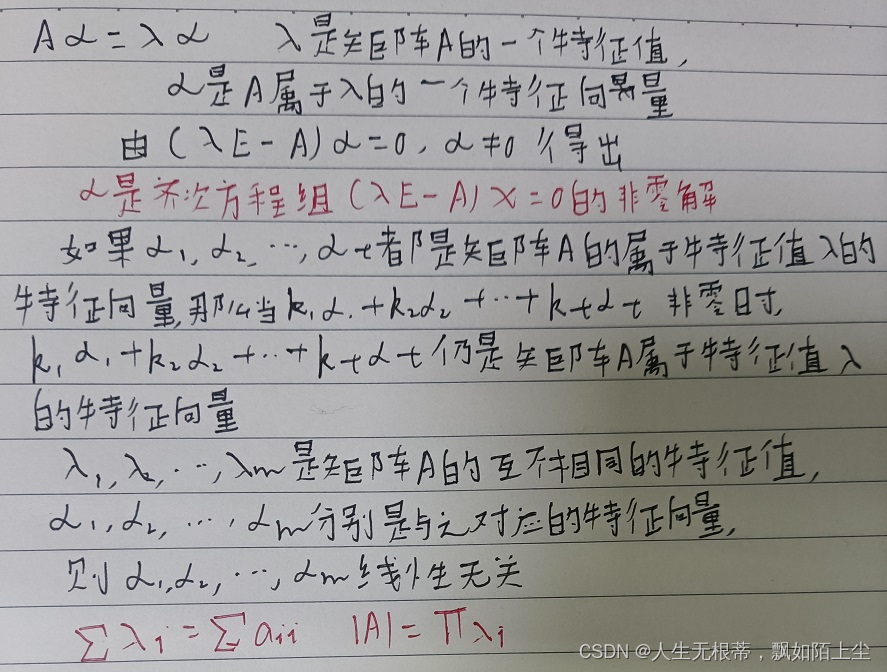 Aα=λα λ是矩阵A的一个特征值,
α是A属于λ的一个特征向量
由(λE-A)α=0,α≠0得出
α是齐次方程组(λE-A)X=0的非零解
如果α₁,α₂,…,αt都是矩阵A的属于特征值λ的
特征向量,那么当k₁α₁+k₂α₂+…+ktαt非零时,
k₁α₁+k₂α₂+…+ktαt仍是矩阵A属于特征值λ
的特征向量
λ₁,λ₂,…,λm是矩阵A的互不相同的特征值,
α₁,α₂,…,αm分别是与之对应的特征向量,
则α₁,α₂,…,αm线性无关
∑λi=∑aii |A|=∏λi
CSDN @人生无根蒂，飘如陌上尘